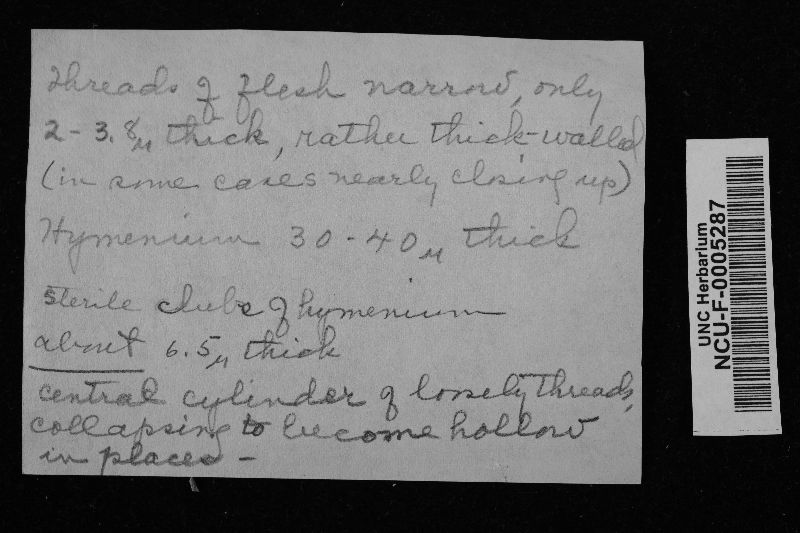 Threads of flesh narrow, only
2-3.8µ thick, rather thick-walled
(in some cases nearly closing up)
Hymenium 30-40µ thick
Sterile clubs of hymenium
about 6.5µ thick
central cylinder of loosely threads,
collapsing to become hollow
in places -
UNC Herbarium
NCU-F-0005287